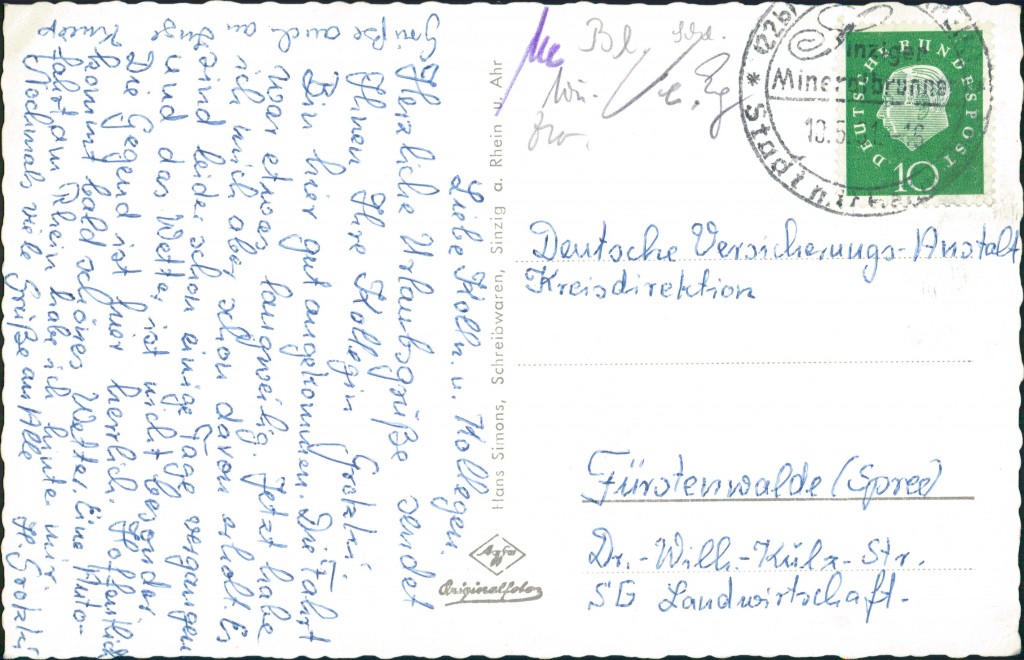 Liebe Kolln. u. Kollegen.
Herzliche Urlaubsgrüße sendet
Ihnen Ihre Kollegin Grotzki.
Bin hier gut angekommen. Die Fahrt
war etwas langweilig. Jetzt habe
ich mich aber schon davon erholt. Es
sind leider schon einige Tage vergangen
und das Wetter, ist nicht besonders.
Die Gegend ist hier herrlich. Hoffentlich
kommt bald schönes Wetter. Eine Auto-
fahrt am Rhein habe ich hinter mir
Nochmals viele Grüße an Alle H. Grotzki
Grüße auch
Hans Simons, Schreibwaren, Sinzig a. Rhein u. Ahr
Agfa
Originalfoto
Bl.
(22b)
Sinziger
Mineralbrunnen
DEUTSCHE BUNDESPOST
10
Deutsche Versicherungs-Anstalt
Kreisdirektion
Fürstenwalde (Spree)
Dr.-Wilh.-Külz-Str.
SG Landwirtschaft.